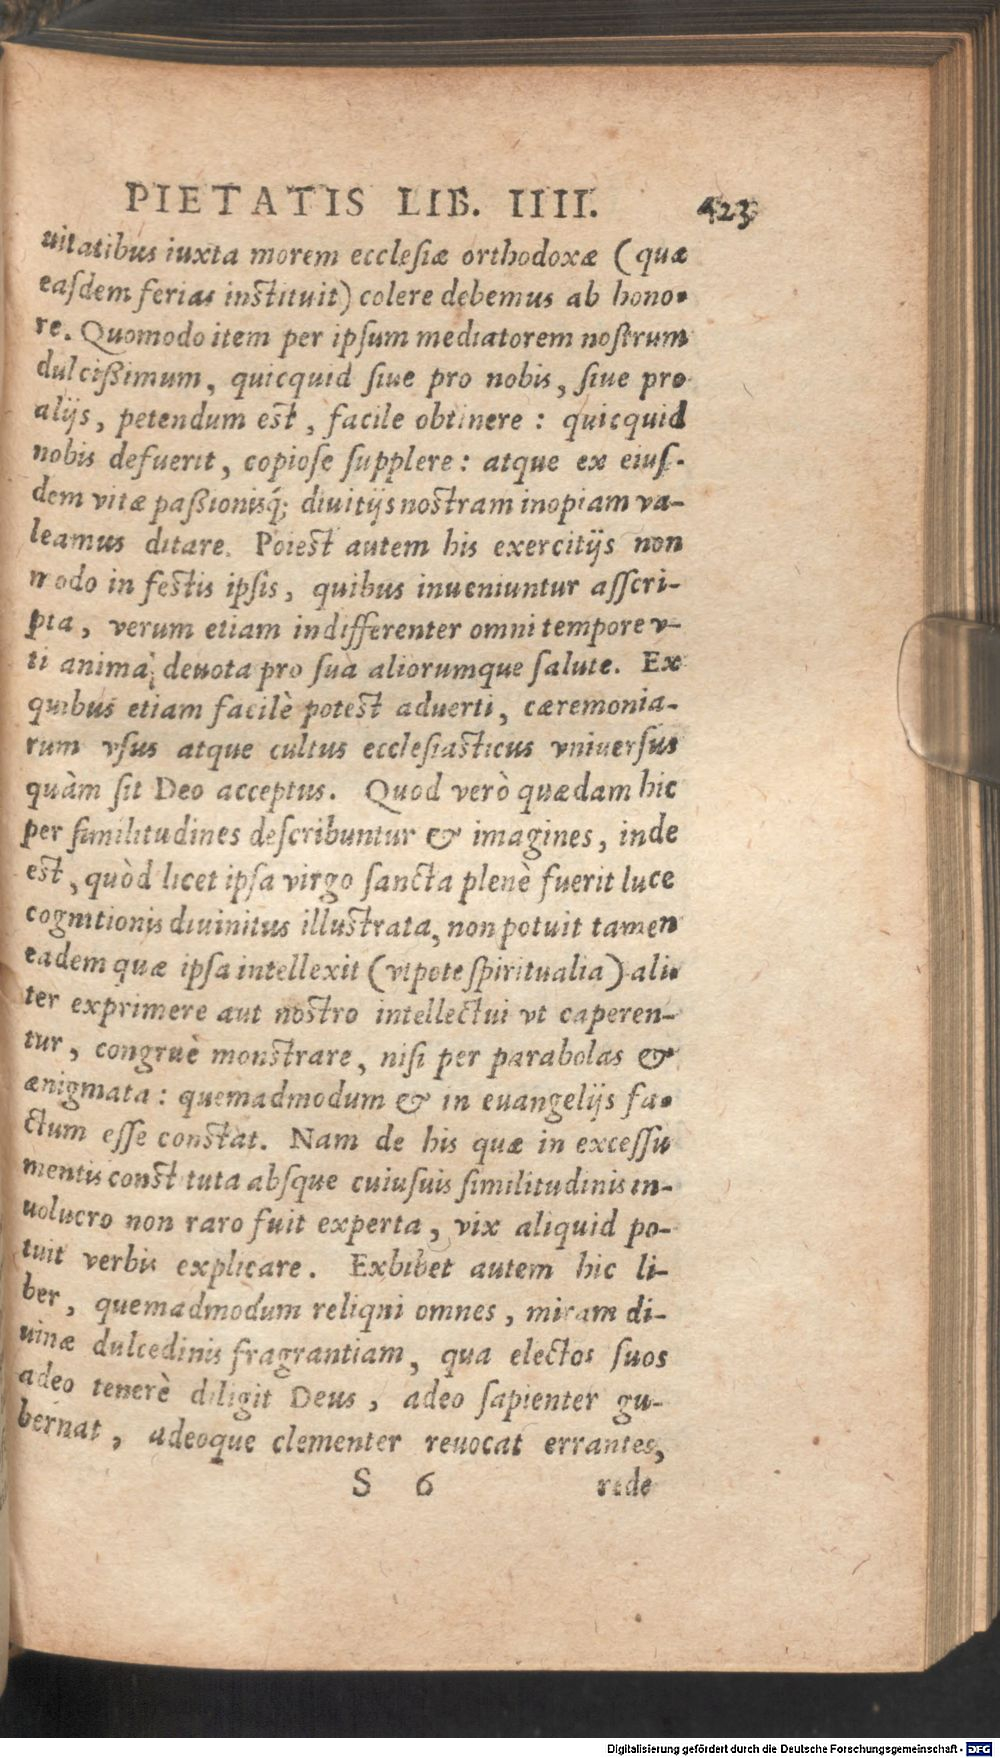 PIETATIS LIB. IIII. 423
uitatibus iuxta morem ecclesiæ orthodoxæ (quæ
easdem ferias instituit) colere debemus ab hono-
re. Quomodo item per ipsum mediatorem nostrum
dulcißimum, quicquid siue pro nobis, siue pro
alijs, petendum est, facile obtinere: quicquid
nobis defuerit, copiose supplere: atque ex eius-
dem vitæ paßionisq́; diuitijs nostram inopiam va-
leamus ditare. Potest autem his exercitijs non
modo in festis ipsis, quibus inueniuntur asscri-
pta, verum etiam indifferenter omni tempore v-
ti anima; deuota pro sua aliorumque salute. Ex
quibus etiam facilè potest aduerti, cæremonia-
rum vsus atque cultus ecclesiasticus vniuersus
quàm sit Deo acceptus. Quod verò quædam hic
per similitudines describuntur & imagines, inde
est, quòd licet ipsa virgo sancta plenè fuerit luce
cognitionis diuinitus illustrata, non potuit tamen
eadem quæ ipsa intellexit (vtpote spiritualia) ali-
ter exprimere aut nostro intellectui vt caperen-
tur, congruè monstrare, nisi per parabolas &
ænigmata: quemadmodum & in euangelijs fa-
ctum esse constat. Nam de his quæ in excessu
mentis constituta absque cuiusuis similitudinis in-
uolucro non raro fuit experta, vix aliquid po-
tuit verbis explicare. Exhibet autem hic li-
ber, quemadmodum reliqui omnes, miram di-
uinæ dulcedinis fragrantiam, qua electos suos
adeo tenerè diligit Deus, adeo sapienter gu-
bernat, adeoque clementer reuocat errantes,
S 6 rede
Digitalisierung gefördert durch die Deutsche Forschungsgemeinschaft - DFG